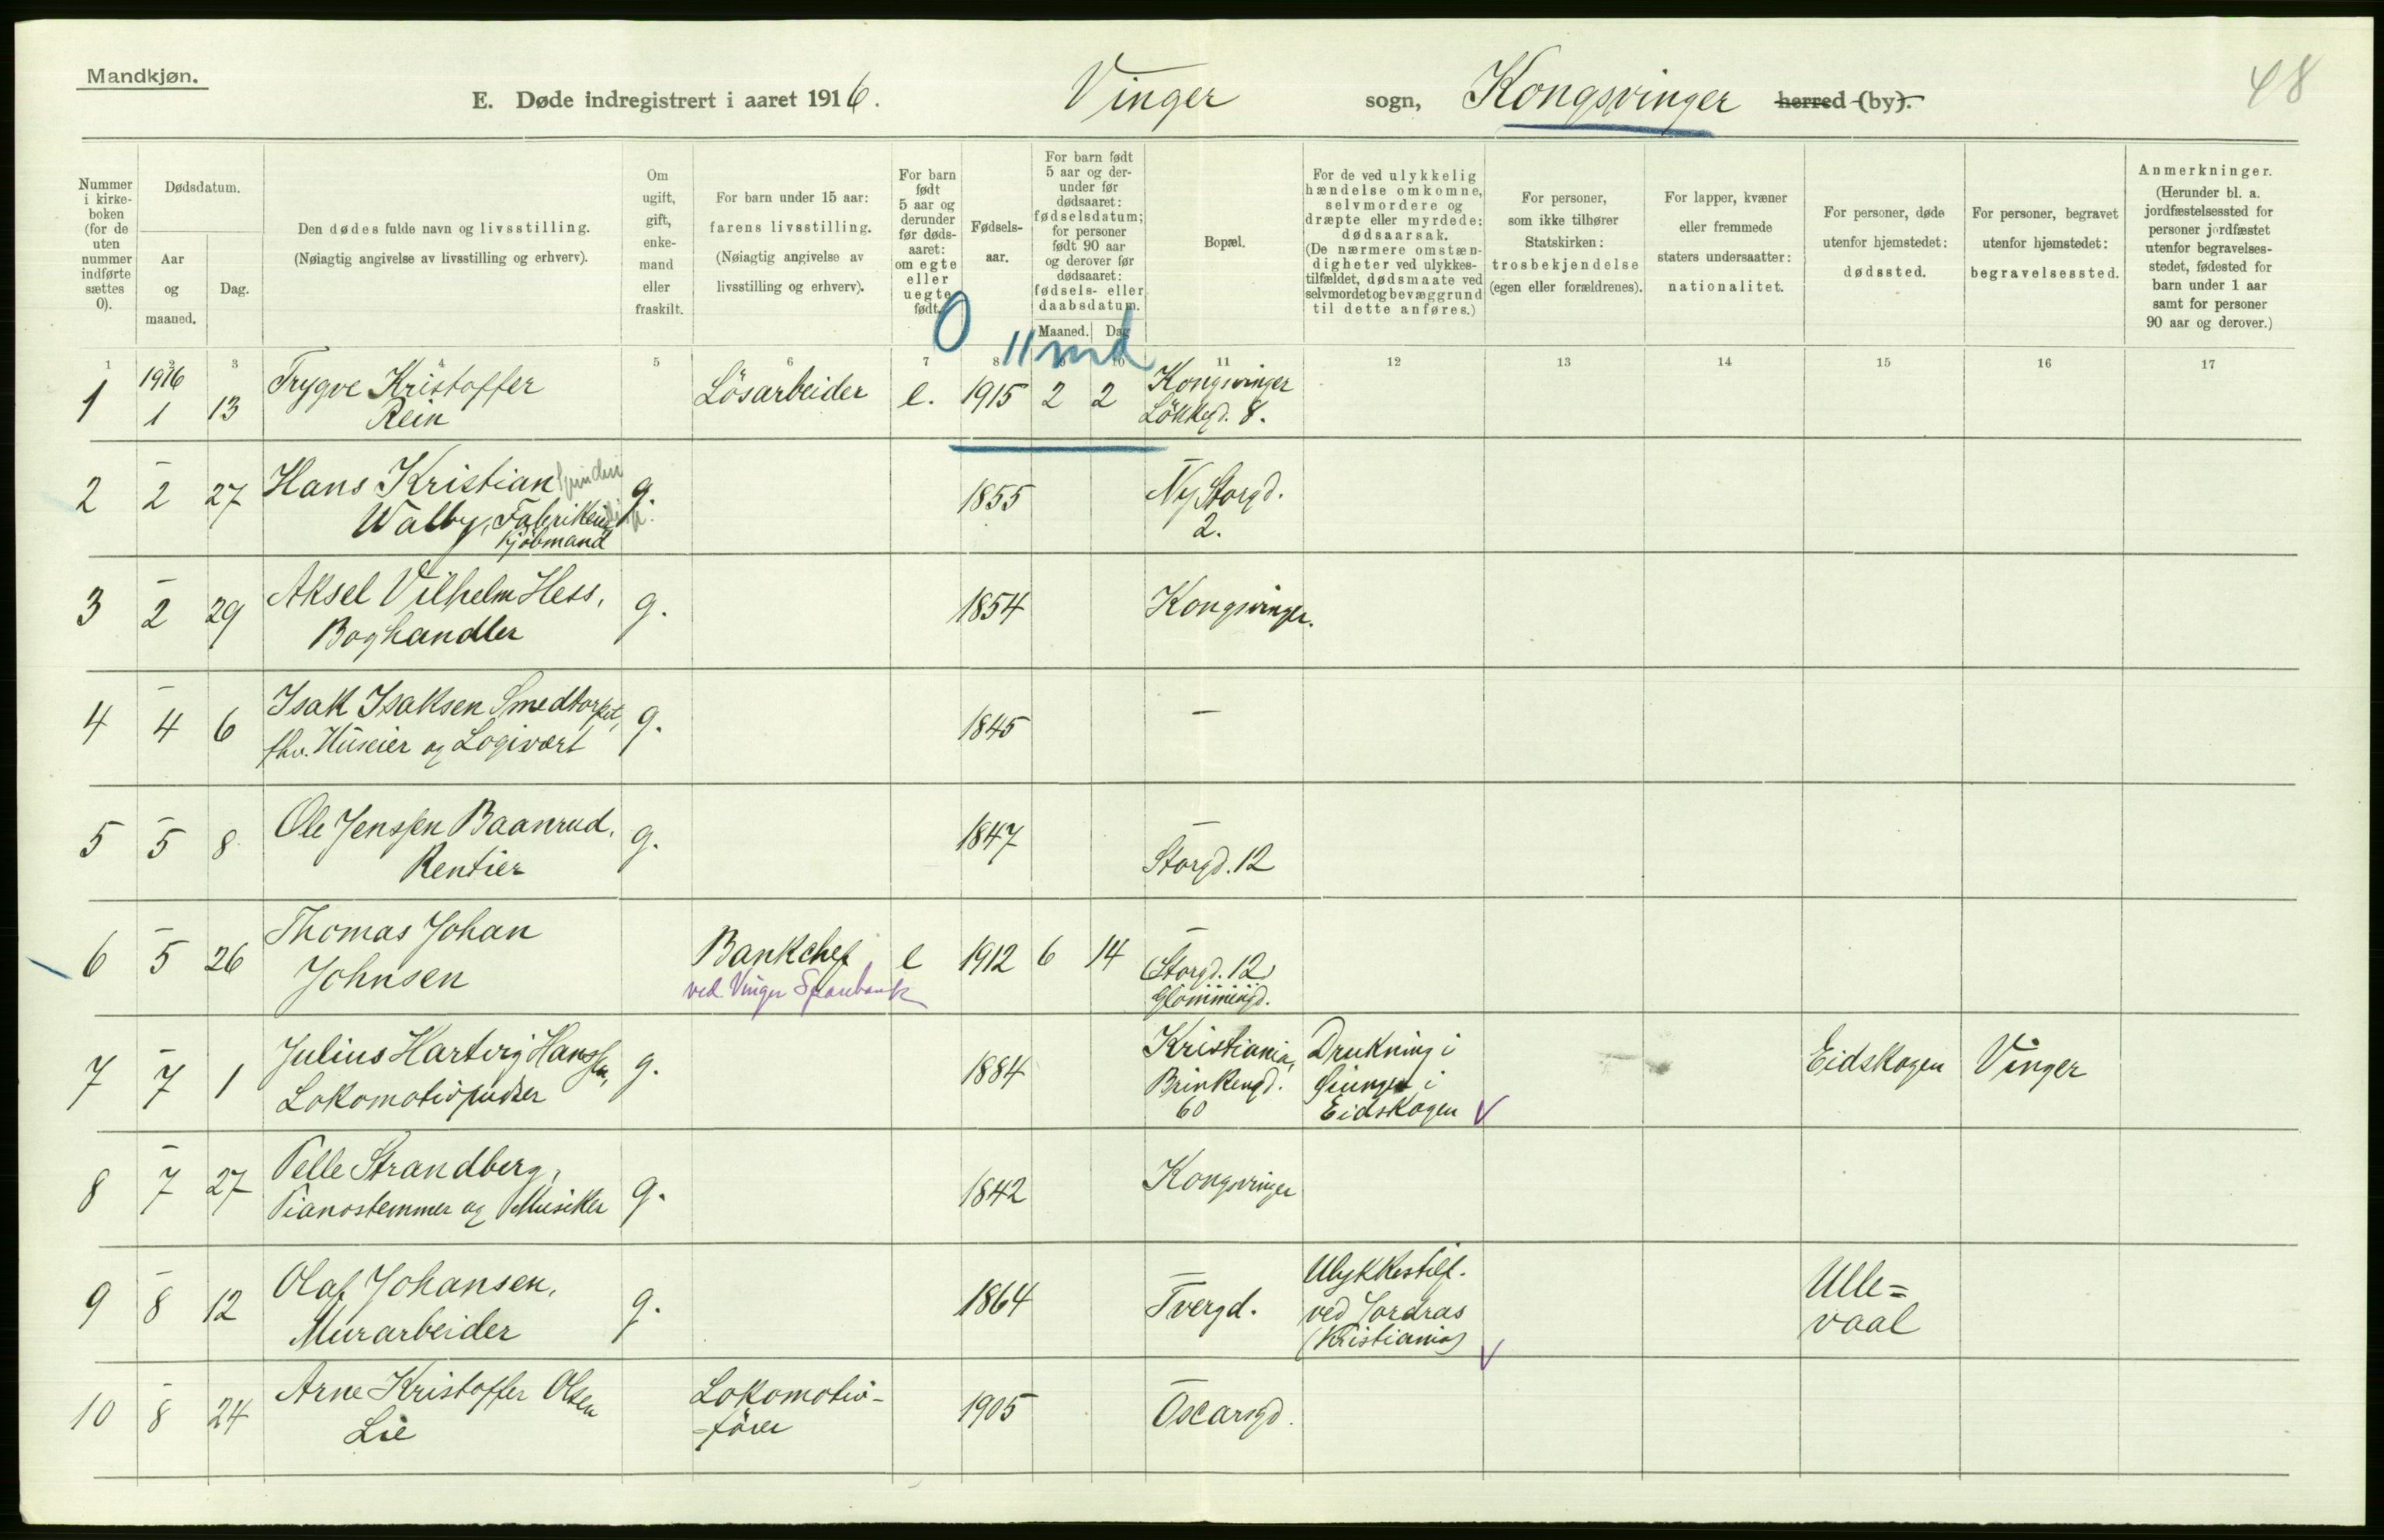 Mandkjøn.
E. Døde indregistrert i aaret 1916. Vinger sogn, Kongsvinger herred (by).
48
Nummer i kirkeboken (for de uten nummer indførte sættes 0).
Dødsdatum.
Aar og maaned.
Dag.
Den dødes fulde navn og livsstilling.
(Nøiagtig angivelse av livsstilling og erhverv).
Om ugift, gift, enkemand eller fraskilt.
For barn under 15 aar: farens livsstilling.
(Nøiagtig angivelse av livsstilling og erhverv).
For barn født 5 aar og derunder før dødsaaret: om egte eller uegte født.
Fødselsaar.
For barn født 5 aar og derunder før dødsaaret: fødselsdatum; for personer født 90 aar og derover før dødsaaret: fødsels- eller daabsdatum.
Maaned. Dag
Bopæl.
For de ved ulykkelig hændelse omkomne, selvmordere og dræpte eller myrdede: dødsaarsak.
(De nærmere omstændigheter ved ulykkestilfældet, dødsmaate ved selvmordet og bevæggrund til dette anføres.)
For personer, som ikke tilhører Statskirken: trosbekjendelse (egen eller forældrenes).
For lapper, kvæner eller fremmede staters undersaatter: nationalitet.
For personer, døde utenfor hjemstedet: dødssted.
For personer, begravet utenfor hjemstedet: begravelsessted.
Anmerkninger.
(Herunder bl. a. jordfæstelsessted for personer jordfæstet utenfor begravelsesstedet, fødested for barn under 1 aar samt for personer 90 aar og derover.)
1 2 3 4 5 6 7 8 9 10 11 12 13 14 15 16 17
0 11 md
1 1916 1 13 Trygve Kristoffer Rein Lösarbeider e. 1915 2 2 Kongsvinger Lökkegd. 8.
2 – 2 27 Hans Kristian Walby, Fabrikeier Kjöbmand g. 1855 – Ny Storgd. 2.
3 – 2 29 Aksel Vilhelm Hess, Boghandler g. 1854 Kongsvinger.
4 – 4 6 Isak Isaksen Smedtorpet, fhv. Huseier og Logivært g. 1845 –
5 – 5 8 Ole Jenssen Baanrud, Rentier g. 1847 – Storgd. 12
6 – 5 26 Thomas Johan Johnsen Bankchef ved Vinger Sparebank e 1912 6 14 – (Storgd. 12) Glommengd.
7 – 7 1 Julius Hartvig Hanssen, Lokomotivpudser g. 1884 Kristiania, Brinkengd. 60 Drukning i Öiungen i Eidskogen V Eidskogen Vinger
8 – 7 27 Pelle Strandberg, Pianostemmer og Musiker g. 1842 Kongsvinger
9 – 8 12 Olaf Johansen, Murarbeider g. 1864 – Tvergd. Ulykkestilf. ved Jordras (Kristiania) V Ulle=vaal
10 – 8 24 Arne Kristoffer Olsen Lie Lokomotiv-förer 1905 – Oscarsgd.